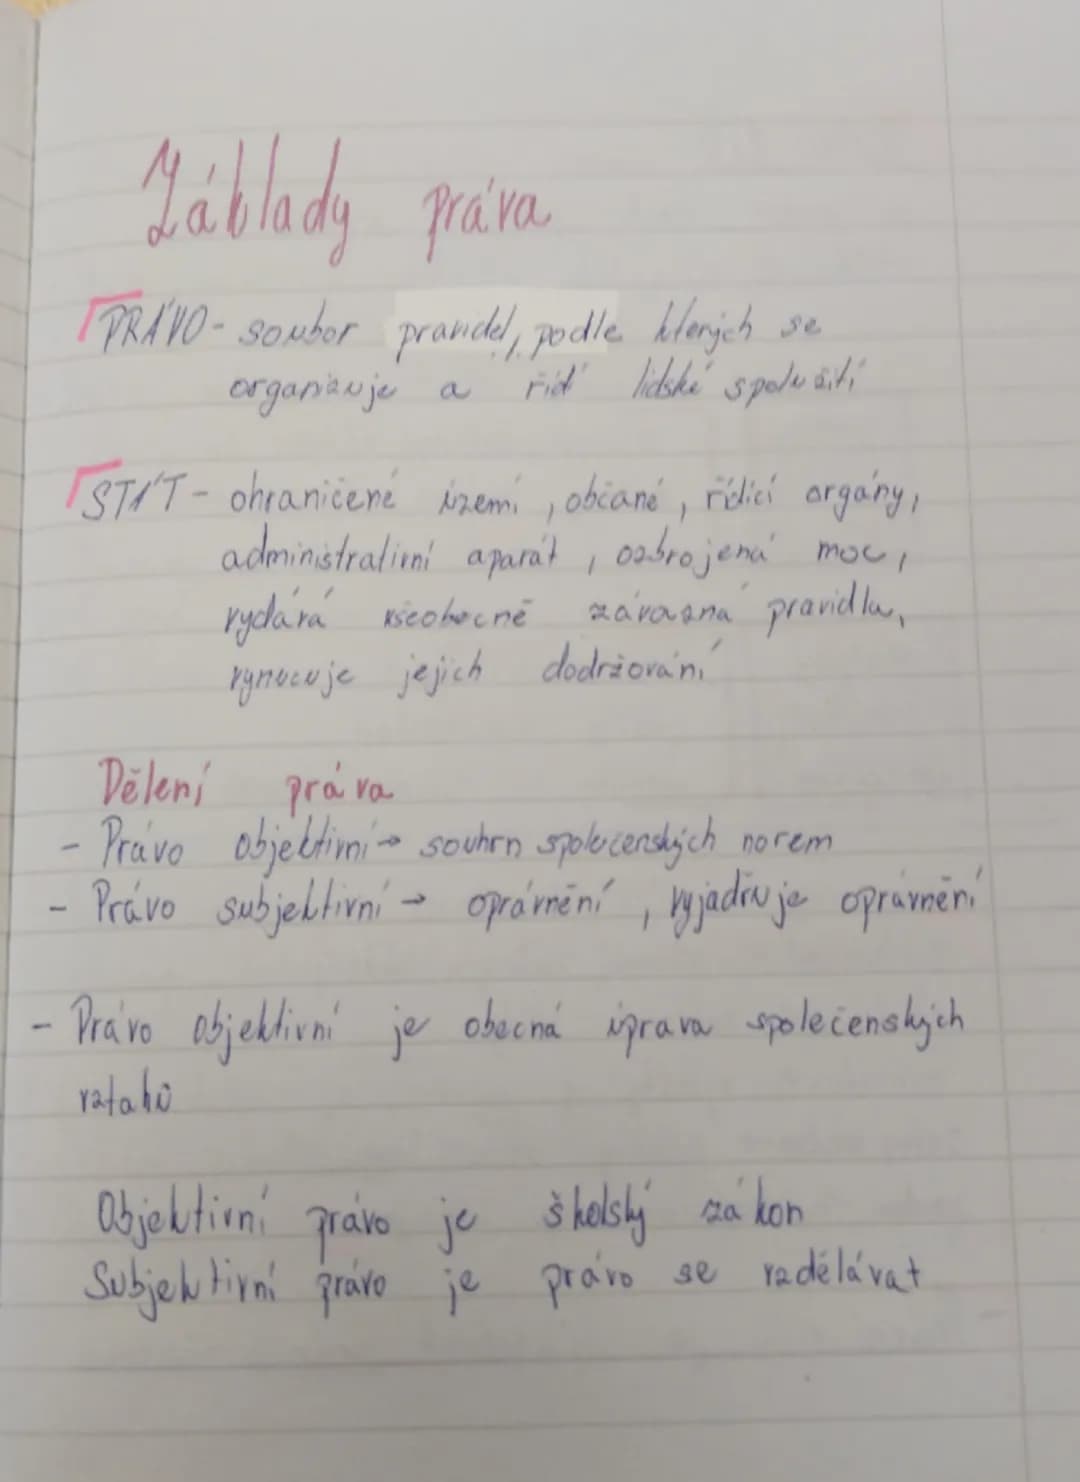 Základy práva
PRÁVO - soubor pravidel, podle kterých se
organizuje a řídí lidské spolužití
STÁT - ohraničené území, občané, řídící orgány,
administrativní aparát, ozbrojená moc,
vydává všeobecně závazná pravidla,
vynucuje jejich dodržování
Dělení práva
- Právo objektivní → souhrn společenských norem
- Právo subjektivní → oprávnění, vyjadřuje oprávnění
- Právo objektivní je obecná úprava společenských
vztahů
Objektivní právo je školský zákon
Subjektivní právo je právo se vzdělávat